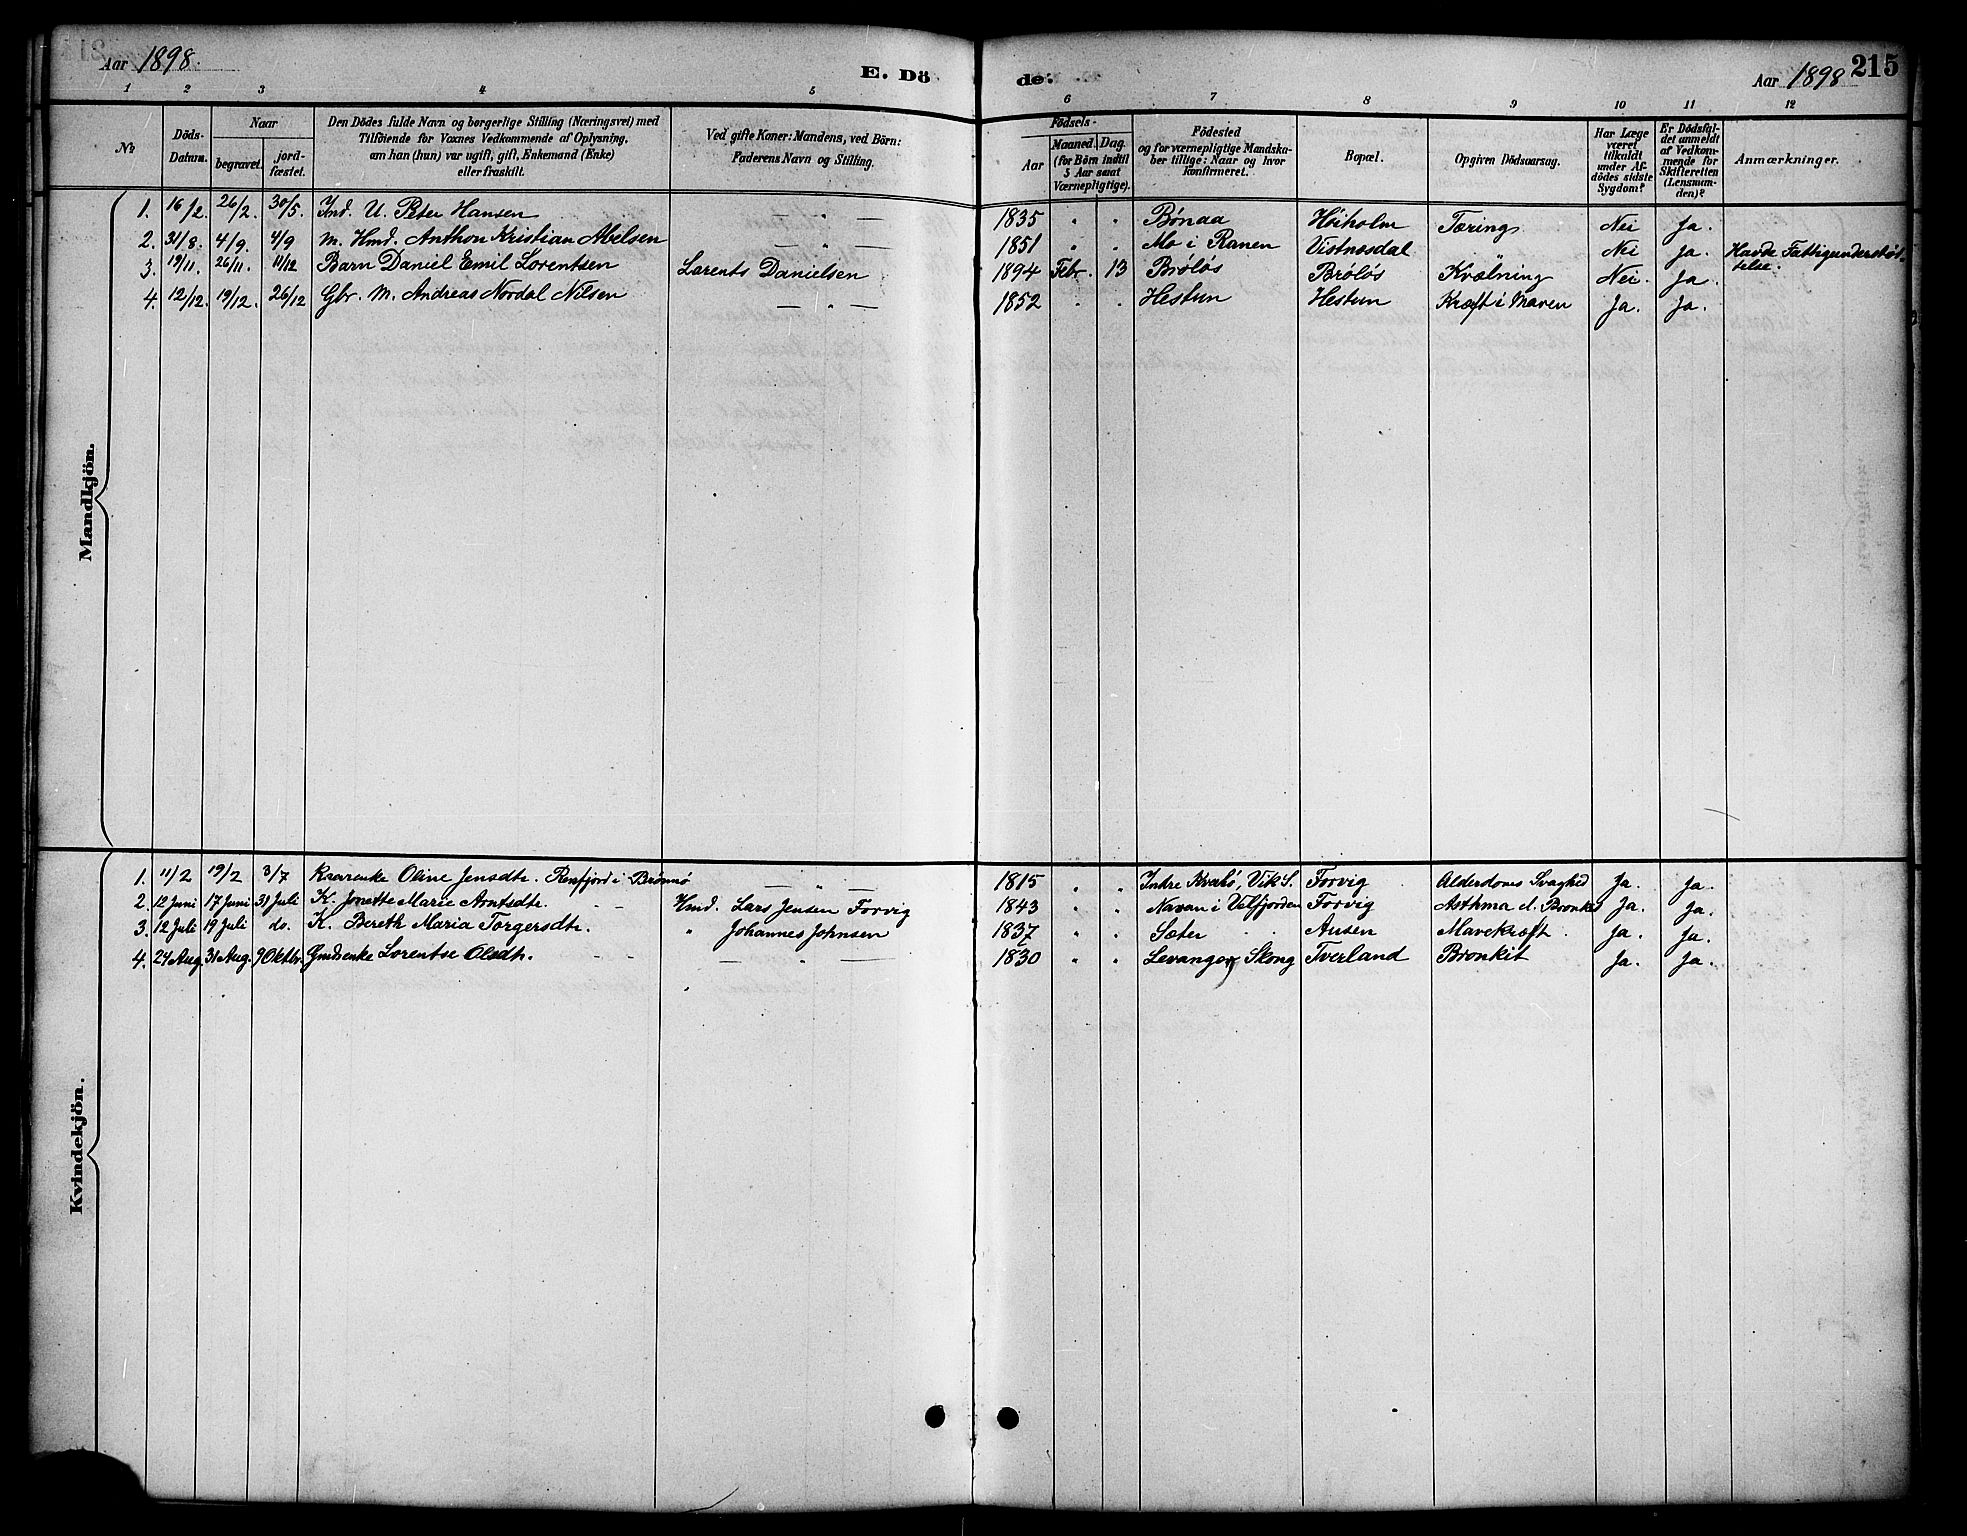 Aar 1898. E. Dö de. Aar 1898 215
1 2 3 4 5 6 7 8 9 10 11 12
No. Döds-Datum. Naar begravet. jord-fæstet. Den Dödes fulde Navn og borgerlige Stilling (Næringsvei) med Tilföiende for Voxnes Vedkommende af Oplysning, om han (hun) var ugift, gift, Enkemand (Enke) eller fraskilt. Ved gifte Koner: Mandens, ved Börn: Faderens Navn og Stilling. Födsels- Aar Maaned. Dag. (for Börn indtil 5 Aar samt Værnepligtige). Födested og for værnepligtige Mandskaber tillige: Naar og hvor konfirmeret. Bopæl. Opgiven Dödsaarsag. Har Læge været tilkaldt under Afdödes sidste Sygdom? Er Dödsfaldet anmeldt af Vedkommende for Skifteretten (Lensmanden)? Anmærkninger.
Mandkjön.
1. 16/2 26/2. 30/5. Ind. U. Peter Hansen — " — 1835 " " Bønaa Høiholm Tæring Nei Ja.
2. 31/8. 4/9. 4/9 M. Hmd. Anthon Kristian Abelsen — " — 1851 " " Mo i Ranen Vistnæsdal Nei Ja. Havde Fattigunderstøt-
3. 19/11. 26/11. 11/12 Barn Daniel Emil Lorentsen Lorents Danielsen 1894 Febr. 13 Brøløs Brøløs Kvælning Nei. Ja. telse.
4. 12/12. 19/12. 26/12 Gbr. M. Andreas Nordal Nilsen — " — 1852 " " Hestun Hestun Kræft i Maven Ja. Ja.
Kvindekjön.
1. 11/2 19/2 3/7 Kaarenke Oline Jensdtr. Renfjord i Brønnø — " — 1815 " " Indre Kvalø, Vik S. Forvig Alderdoms Svaghed Ja. Ja.
2. 12 Juni 17 Juni 31 Juli K. Jonette Marie Arntsdtr. Hmd. Lars Jensen Forvig 1843 " " Navan i Velfjorden Forvig Asthma d. Bronkit Ja. Ja.
3. 12 Juli 19 Juli do. K. Bereth Maria Torgersdtr. " Johannes Johnsen 1837 " " Sæter Ausen Mavekræft. Ja. Ja.
4. 24 Aug. 31 Aug. 9 Oktbr. Gmdsenke Lorentse Olsdtr. — " — 1830 " " Levanger, Skong Tverland Bronkit Ja. Ja.